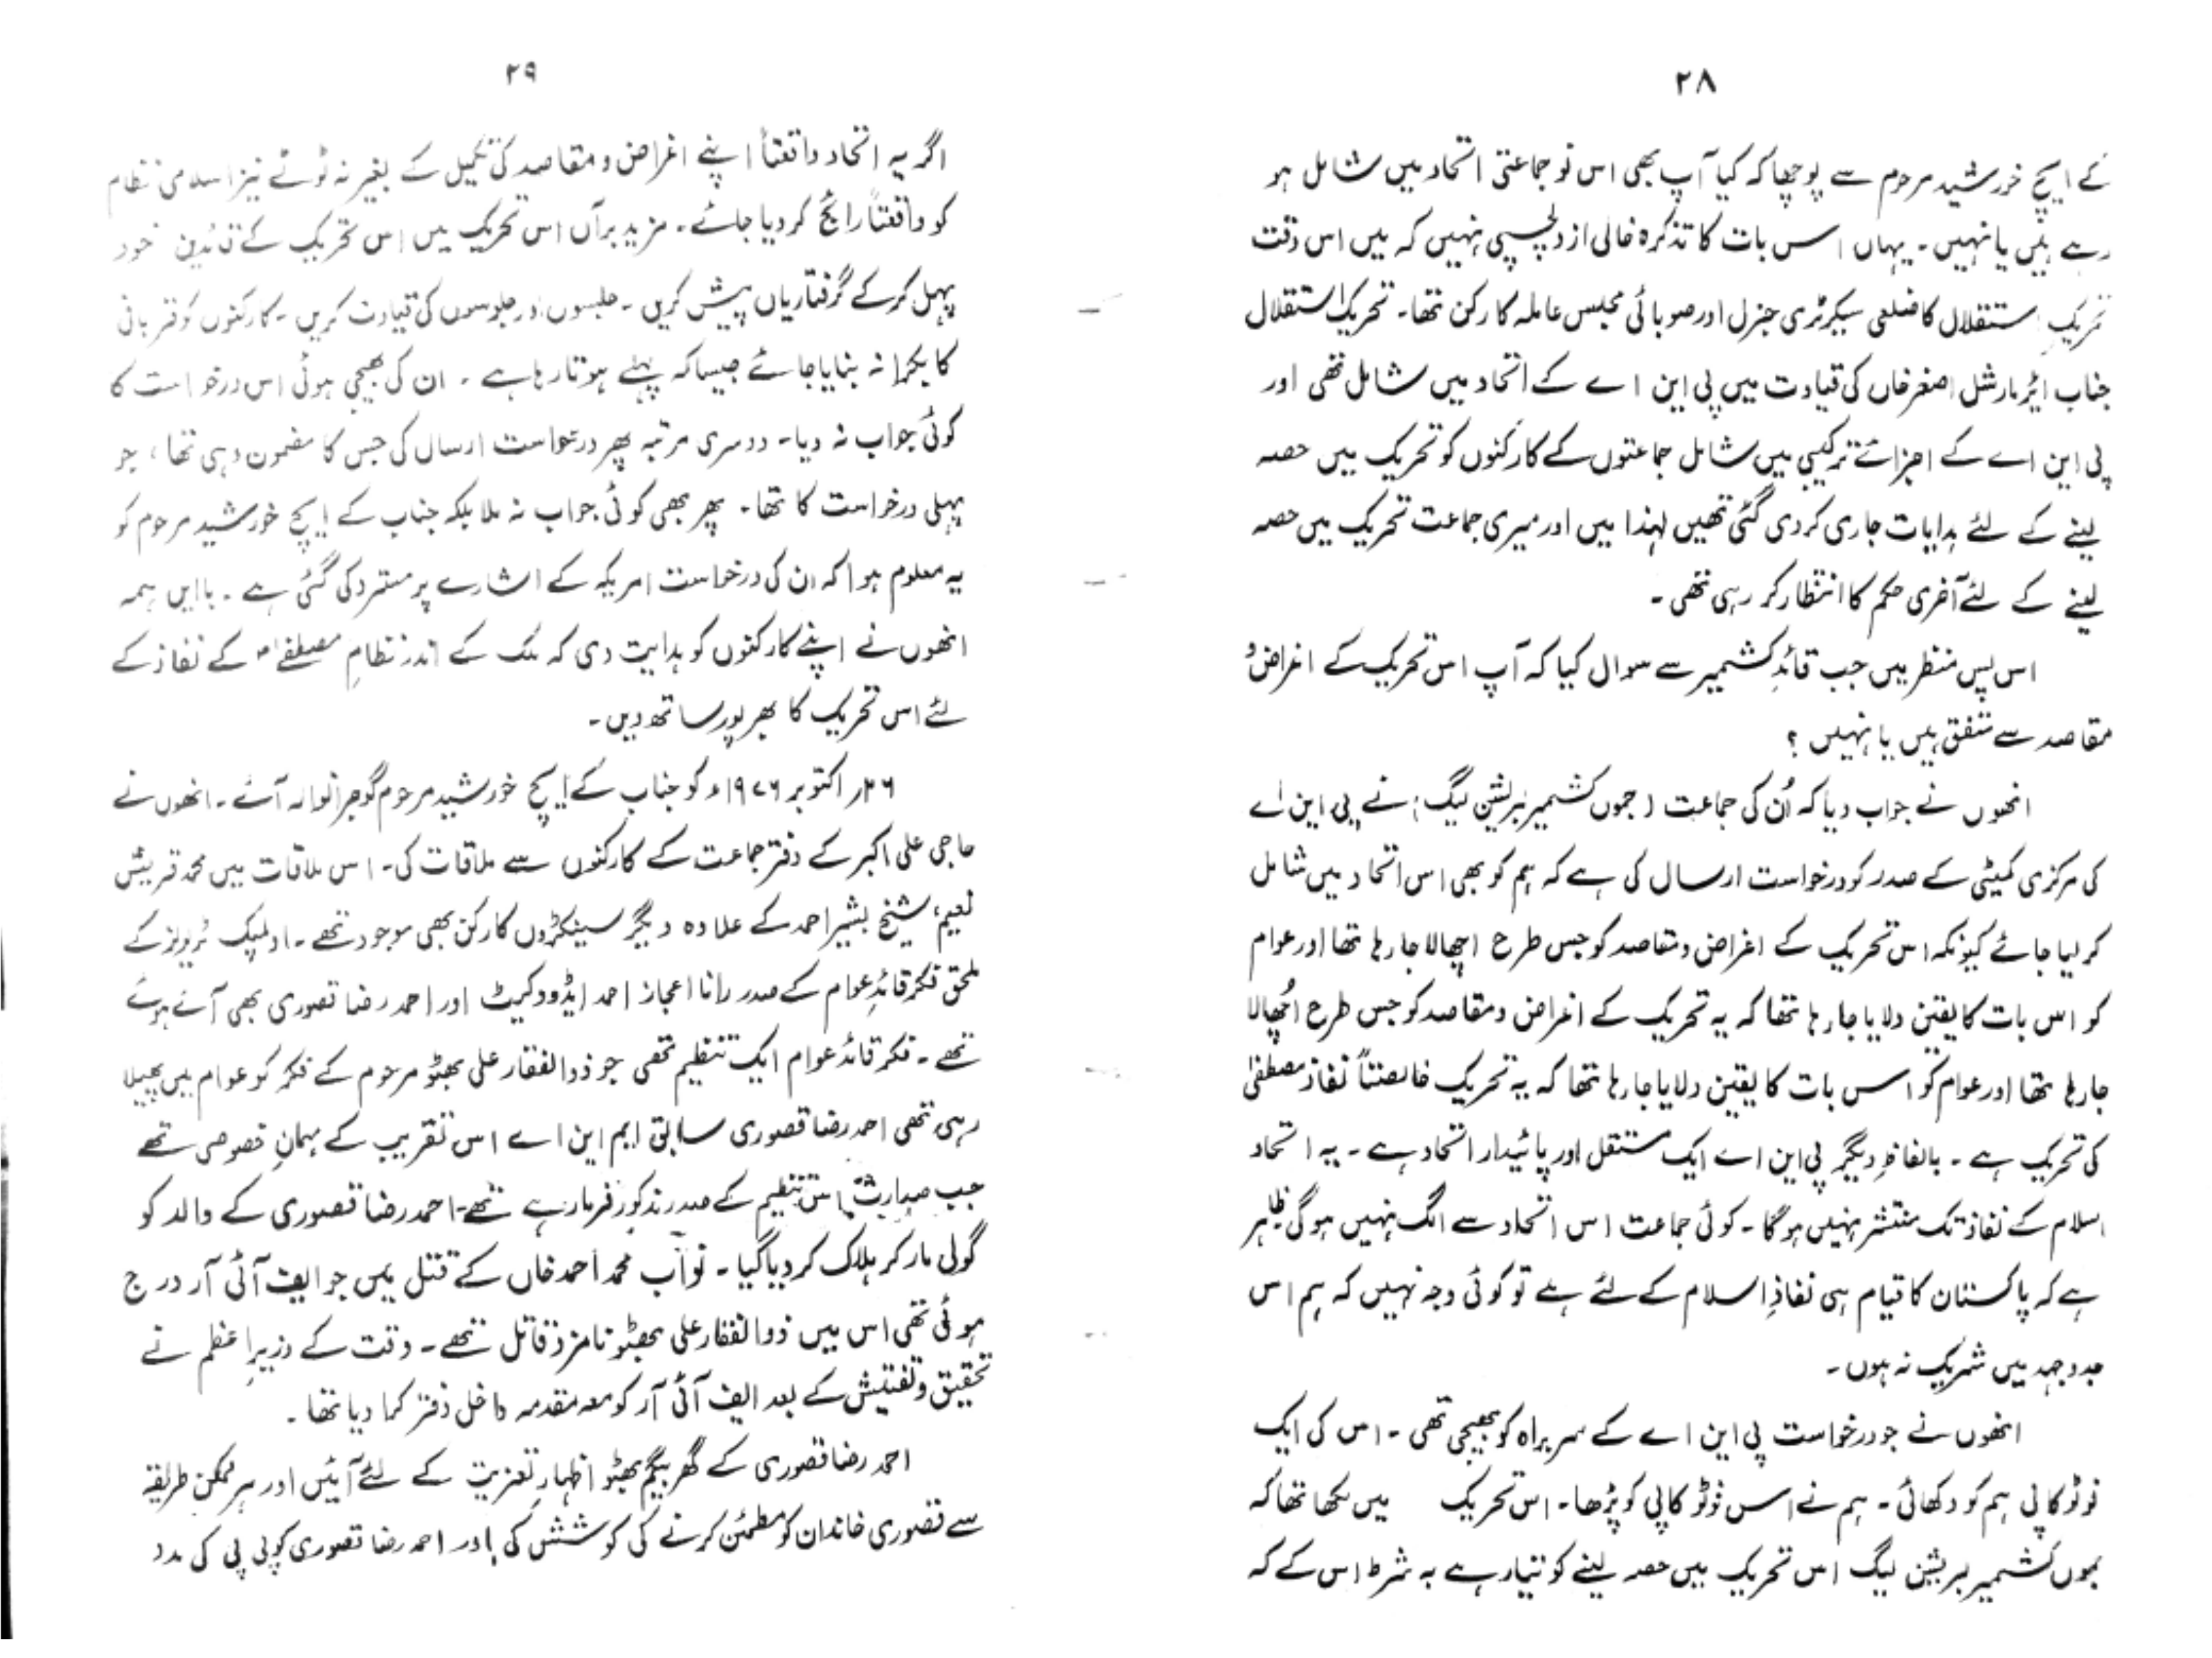 ۲۸
کے ایچ خورشید مرحوم سے پوچھا کہ کیا آپ بھی اس نو جماعتی اتحاد میں شامل ہو
رہے ہیں یا نہیں۔ یہاں اس بات کا تذکرہ خالی از دلچسپی نہیں کہ میں اس وقت
تحریکِ استقلال کا ضلعی سیکرٹری جنرل اور صوبائی مجلس عاملہ کا رکن تھا۔ تحریک استقلال
جناب ائیر مارشل اصغر خاں کی قیادت میں پی این اے کے اتحاد میں شامل تھی اور
پی این اے کے اجزائے ترکیبی میں شامل جماعتوں کے کارکنوں کو تحریک میں حصہ
لینے کے لئے ہدایات جاری کر دی گئی تھیں لہٰذا میں اور میری جماعت تحریک میں حصہ
لینے کے لئے آخری حکم کا انتظار کر رہی تھی۔
اس پس منظر میں جب قائدِ کشمیر سے سوال کیا کہ آپ اس تحریک کے اغراض و
مقاصد سے متفق ہیں یا نہیں ؟
انھوں نے جواب دیا کہ اُن کی جماعت (جموں کشمیر لبریشن لیگ) نے پی این اے
کی مرکزی کمیٹی کے صدر کو درخواست ارسال کی ہے کہ ہم کو بھی اس اتحاد میں شامل
کر لیا جائے کیونکہ اس تحریک کے اغراض و مقاصد کو جس طرح اچھالا جا رہا تھا اور عوام
کو اس بات کا یقین دلایا جا رہا تھا کہ یہ تحریک کے اغراض و مقاصد کو جس طرح اُچھالا
جا رہا تھا اور عوام کو اس بات کا یقین دلایا جا رہا تھا کہ یہ تحریک خالصتاً نفاذ مصطفیٰ
کی تحریک ہے۔ بالفاظِ دیگر پی این اے ایک مستقل اور پائیدار اتحاد ہے۔ یہ اتحاد
اسلام کے نفاذ تک منتشر نہیں ہو گا۔ کوئی جماعت اس اتحاد سے الگ نہیں ہو گی ظاہر
ہے کہ پاکستان کا قیام ہی نفاذِ اسلام کے لئے ہے تو کوئی وجہ نہیں کہ ہم اس
جدوجہد میں شریک نہ ہوں۔
انھوں نے جو درخواست پی این اے کے سربراہ کو بھیجی تھی۔ اس کی ایک
فوٹو کاپی ہم کو دکھائی۔ ہم نے اس فوٹو کاپی کو پڑھا۔ اس تحریک میں لکھا تھا کہ
جموں کشمیر لبریشن لیگ اس تحریک میں حصہ لینے کو تیار ہے بہ شرط اس کے کہ
۲۹
اگر یہ اتحاد واقعتاً اپنے اغراض و مقاصد کی تکمیل کے بغیر نہ ٹوٹے نیز اسلامی نظام
کو واقعتاً رائج کر دیا جائے۔ مزید برآں اس تحریک میں اس تحریک کے قائدین خود
پہل کر کے گرفتاریاں پیش کریں۔ جلسوں اور جلوسوں کی قیادت کریں۔ کارکنوں کو قربانی
کا بکرا نہ بنایا جائے جیسا کہ پہلے ہوتا رہا ہے۔ ان کی بھیجی ہوئی اس درخواست کا
کوئی جواب نہ دیا۔ دوسری مرتبہ پھر درخواست ارسال کی جس کا مضمون وہی تھا، جو
پہلی درخواست کا تھا۔ پھر بھی کوئی جواب نہ ملا بلکہ جناب کے ایچ خورشید مرحوم کو
یہ معلوم ہوا کہ ان کی درخواست امریکہ کے اشارے پر مسترد کی گئی ہے۔ باایں ہمہ
انھوں نے اپنے کارکنوں کو ہدایت دی کہ ملک کے اندر نظامِ مصطفےٰؐ کے نفاذ کے
لئے اس تحریک کا بھرپور ساتھ دیں۔
۲۶؍ اکتوبر ۱۹۷۶ء کو جناب کے ایچ خورشید مرحوم گوجرانوالہ آئے۔ انھوں نے
حاجی علی اکبر کے دفتر جماعت کے کارکنوں سے ملاقات کی۔ اس ملاقات میں محمد قریش
نعیم، شیخ بشیر احمد کے علاوہ دیگر سینکڑوں کارکن بھی موجود تھے۔ اولمپک ٹریولز کے
ملحق فکر قائدِ عوام کے صدر رانا اعجاز احمد ایڈووکیٹ اور احمد رضا قصوری بھی آئے ہوئے
تھے۔ فکر قائد عوام ایک تنظیم تھی جو ذوالفقار علی بھٹو مرحوم کے فکر کو عوام میں پھیلا
رہی تھی احمد رضا قصوری سابق ایم این اے اس تقریب کے مہمانِ خصوصی تھے
جب صدارت اس تنظیم کے صدر مذکور فرما رہے تھے۔ احمد رضا قصوری کے والد کو
گولی مار کر ہلاک کر دیا گیا۔ نواب محمد احمد خاں کے قتل میں جو ایف آئی آر درج
ہوئی تھی اس میں ذوالفقار علی بھٹو نامزد قاتل تھے۔ وقت کے وزیرِ اعظم نے
تحقیق و تفتیش کے بعد ایف آئی آر کو معہ مقدمہ داخل دفتر کرا دیا تھا۔
احمد رضا قصوری کے گھر بیگم بھٹو اظہارِ تعزیت کے لئے آئیں اور ہر ممکن طریقہ
سے قصوری خاندان کو مطمئن کرنے کی کوشش کی اور احمد رضا قصوری کو پی پی کی مدد